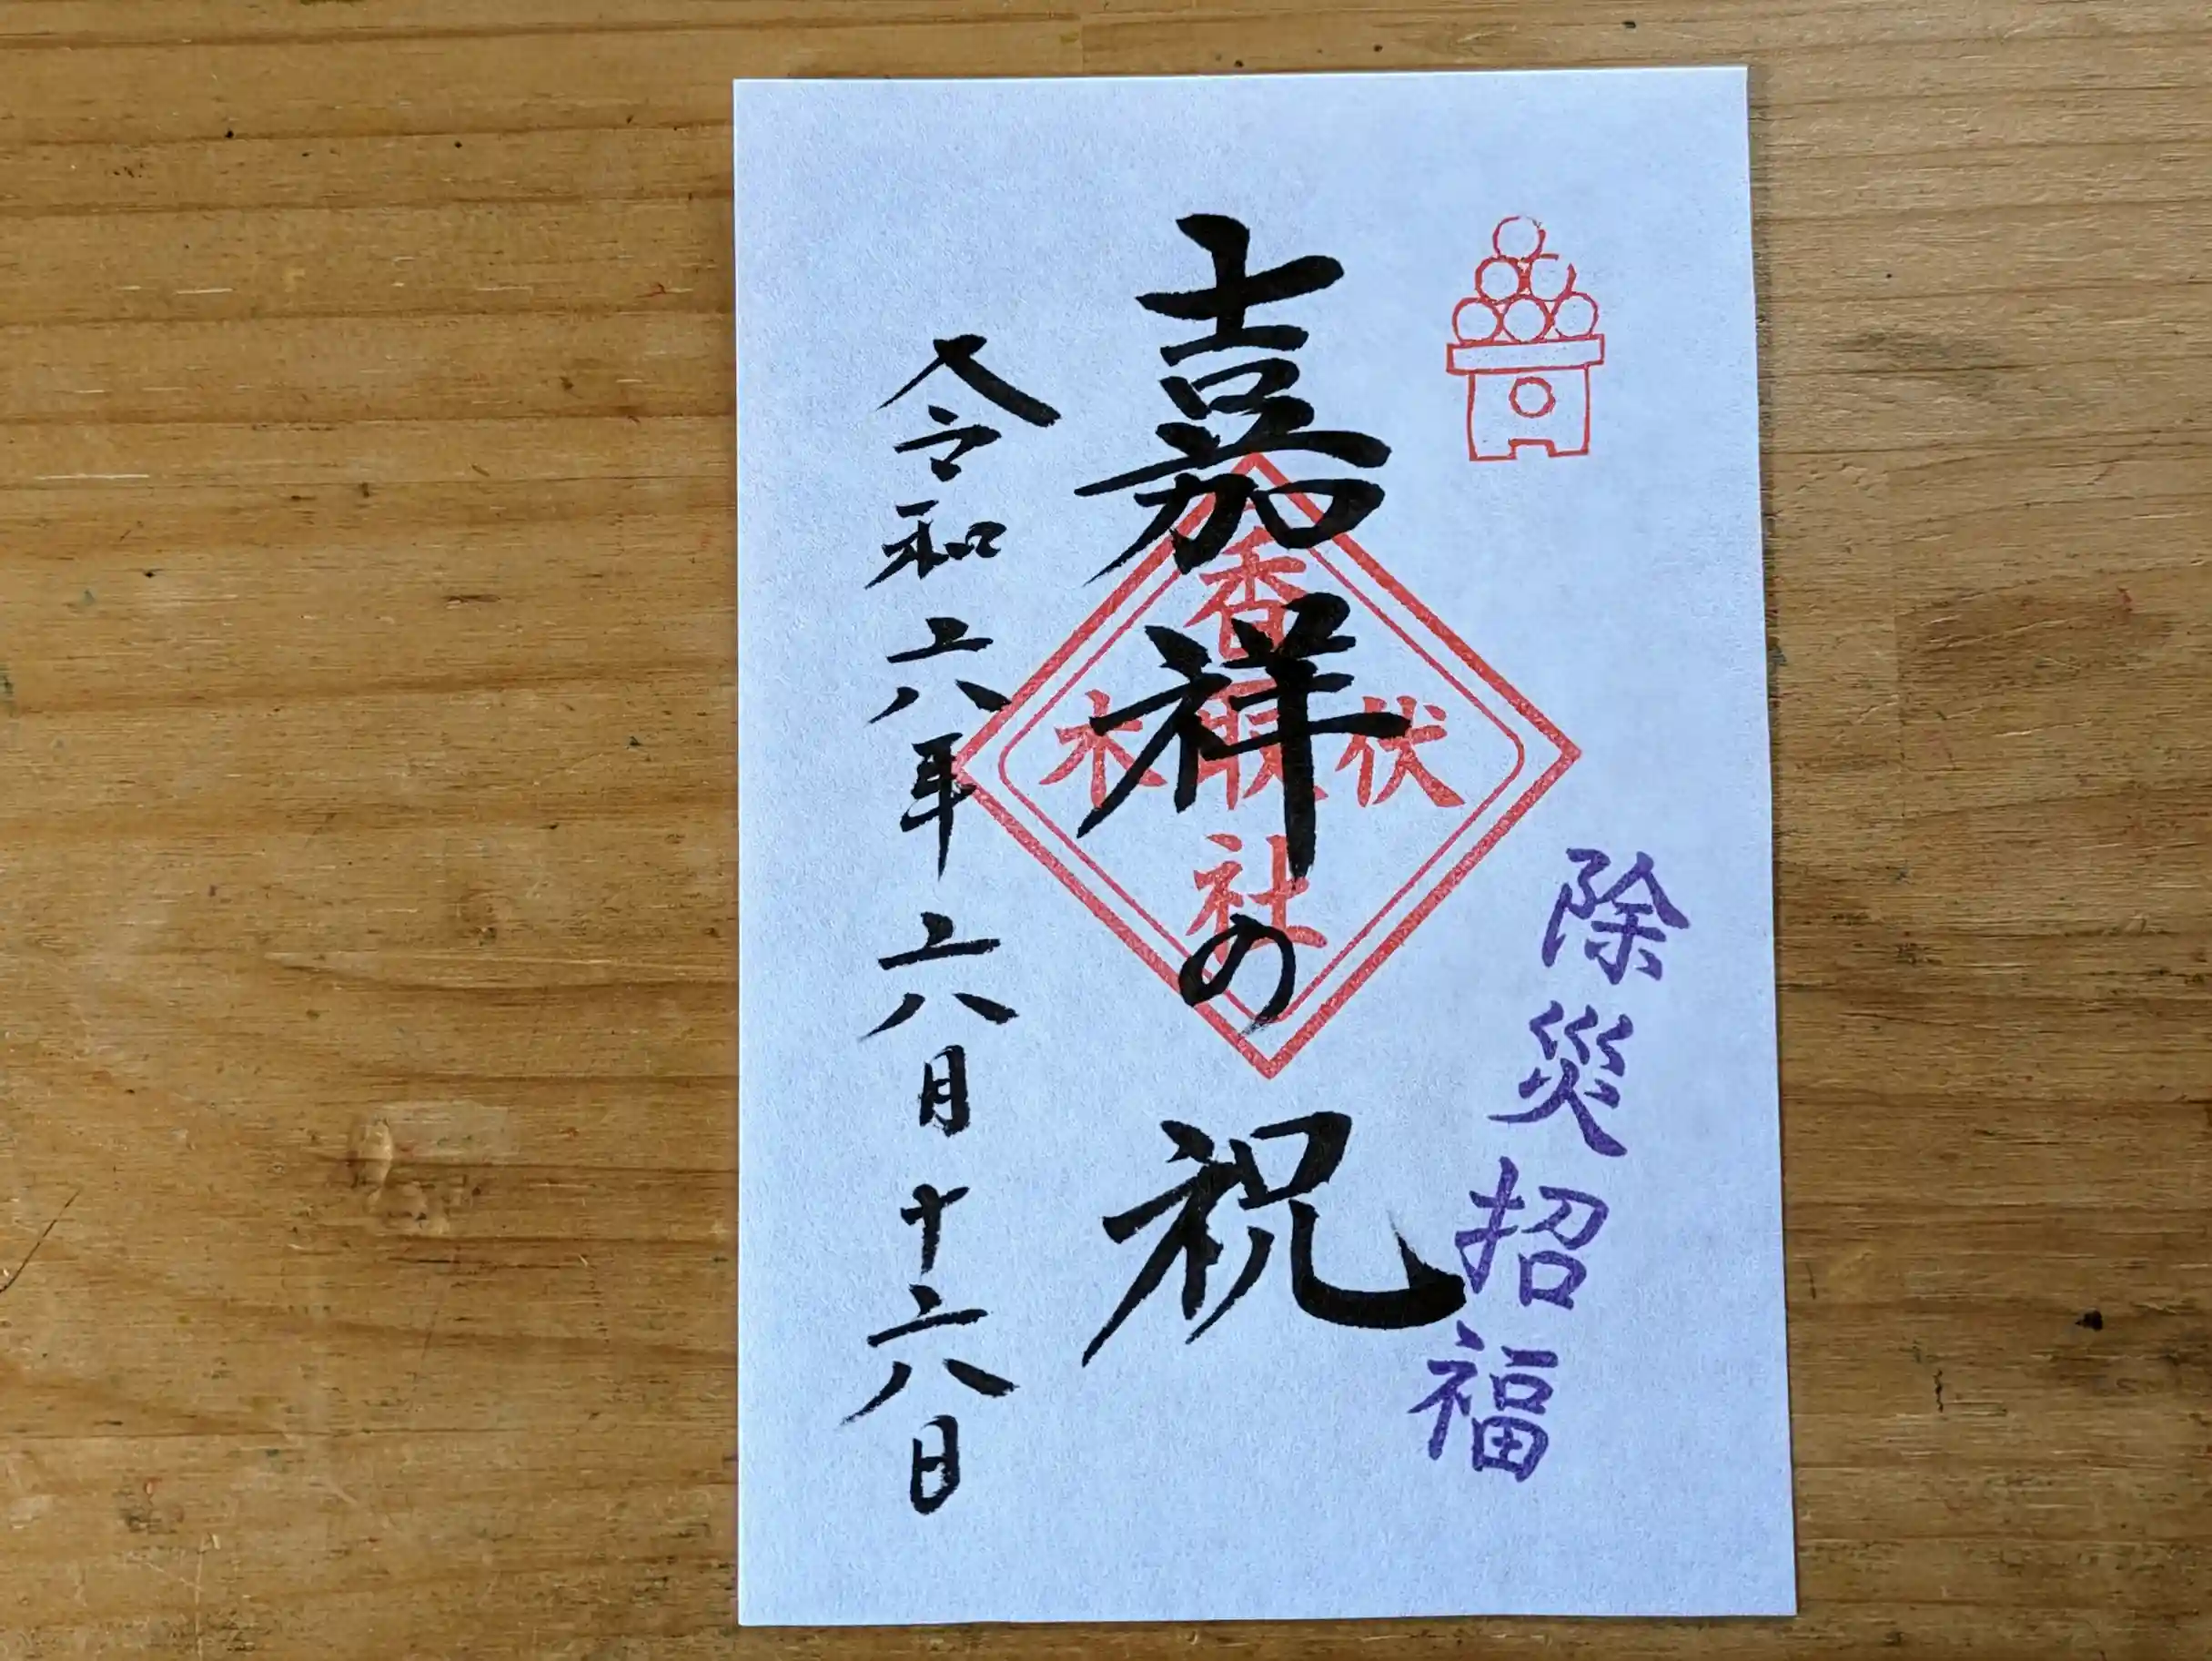 除災招福
嘉祥の祝
伏木
香取社
令和六年六月十六日